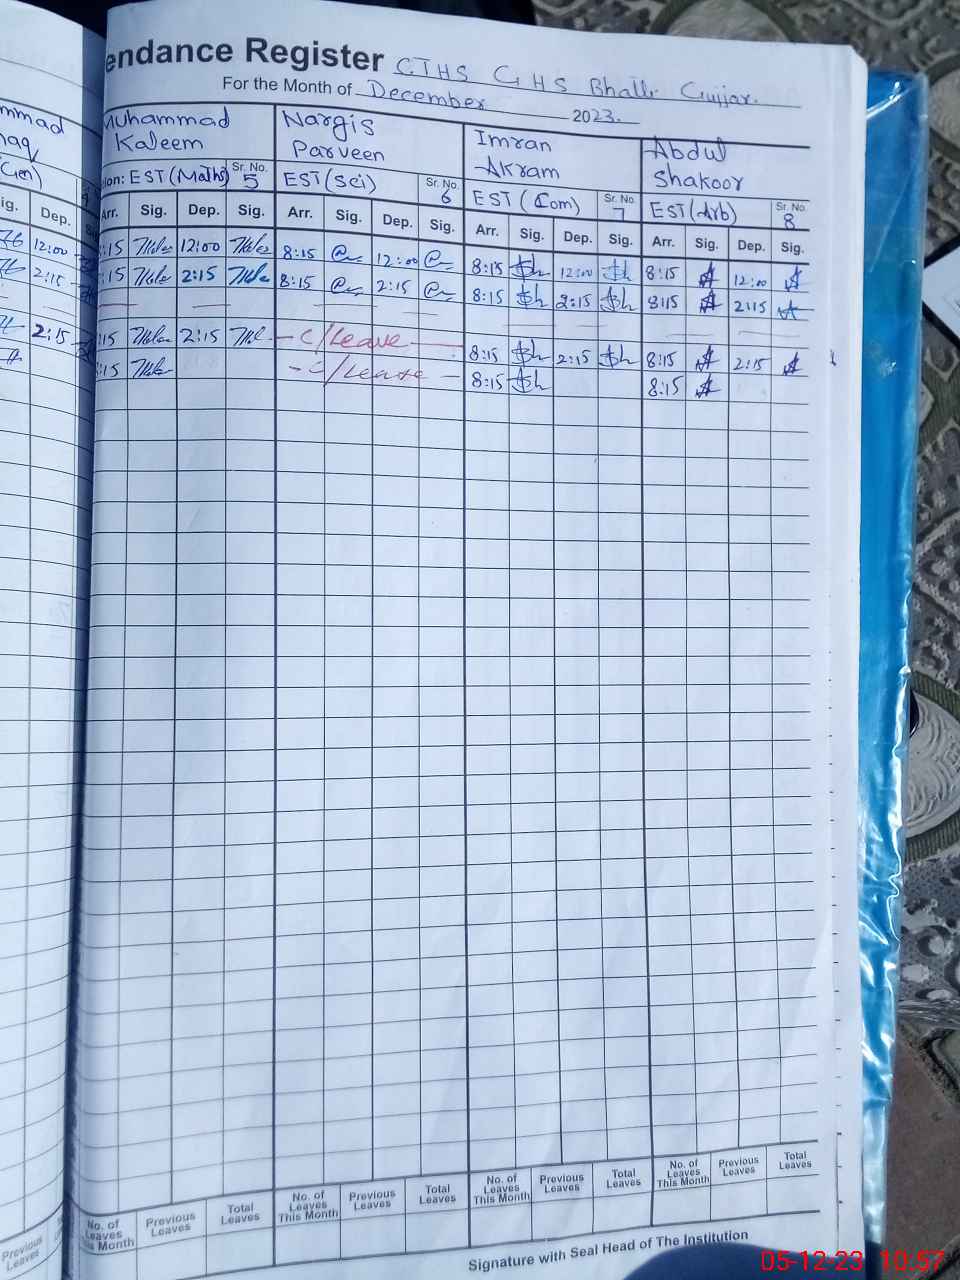 endance Register GTHS GHS Bhalli Gujjar.
For the Month of December 2023.
mmad Muhammad Nargis Imran Abdul
haq Kaleem Parveen Akram Shakoor
ion: EST (Maths) Sr. No. 5 EST (Sci) Sr. No. 6 EST (Com) Sr. No. 7 EST (Arb) Sr. No. 8
ig. Dep. Arr. Sig. Dep. Sig. Arr. Sig. Dep. Sig. Arr. Sig. Dep. Sig. Arr. Sig. Dep. Sig.
12:00 :15 12:00 8:15 12:00 8:15 12:00 8:15 12:00
2:15 :15 2:15 8:15 2:15 8:15 2:15 8:15 2:15
2:15 :15 2:15 - C/Leave - 8:15 2:15 8:15 2:15
:15 - C/Leave - 8:15 8:15
Previous Leaves No. of Leaves This Month Previous Leaves Total Leaves No. of Leaves This Month Previous Leaves Total Leaves No. of Leaves This Month Previous Leaves Total Leaves No. of Leaves This Month Previous Leaves Total Leaves
Signature with Seal Head of The Institution
05-12-23 10:57